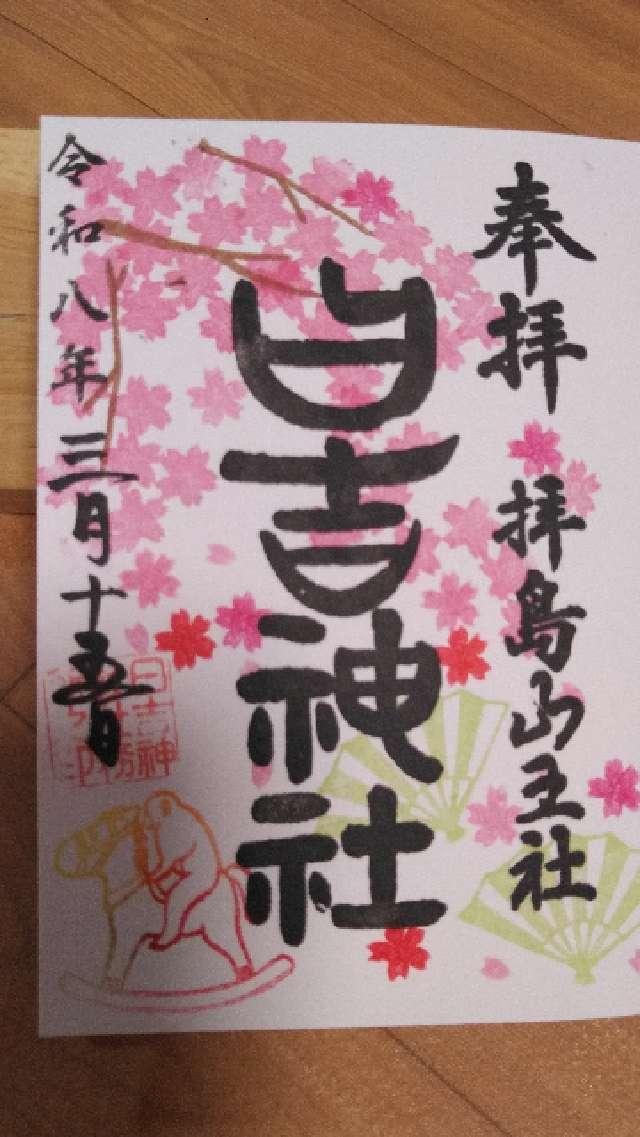 奉拝 拝島山王社
日吉神社
令和八年三月十五日
日吉神